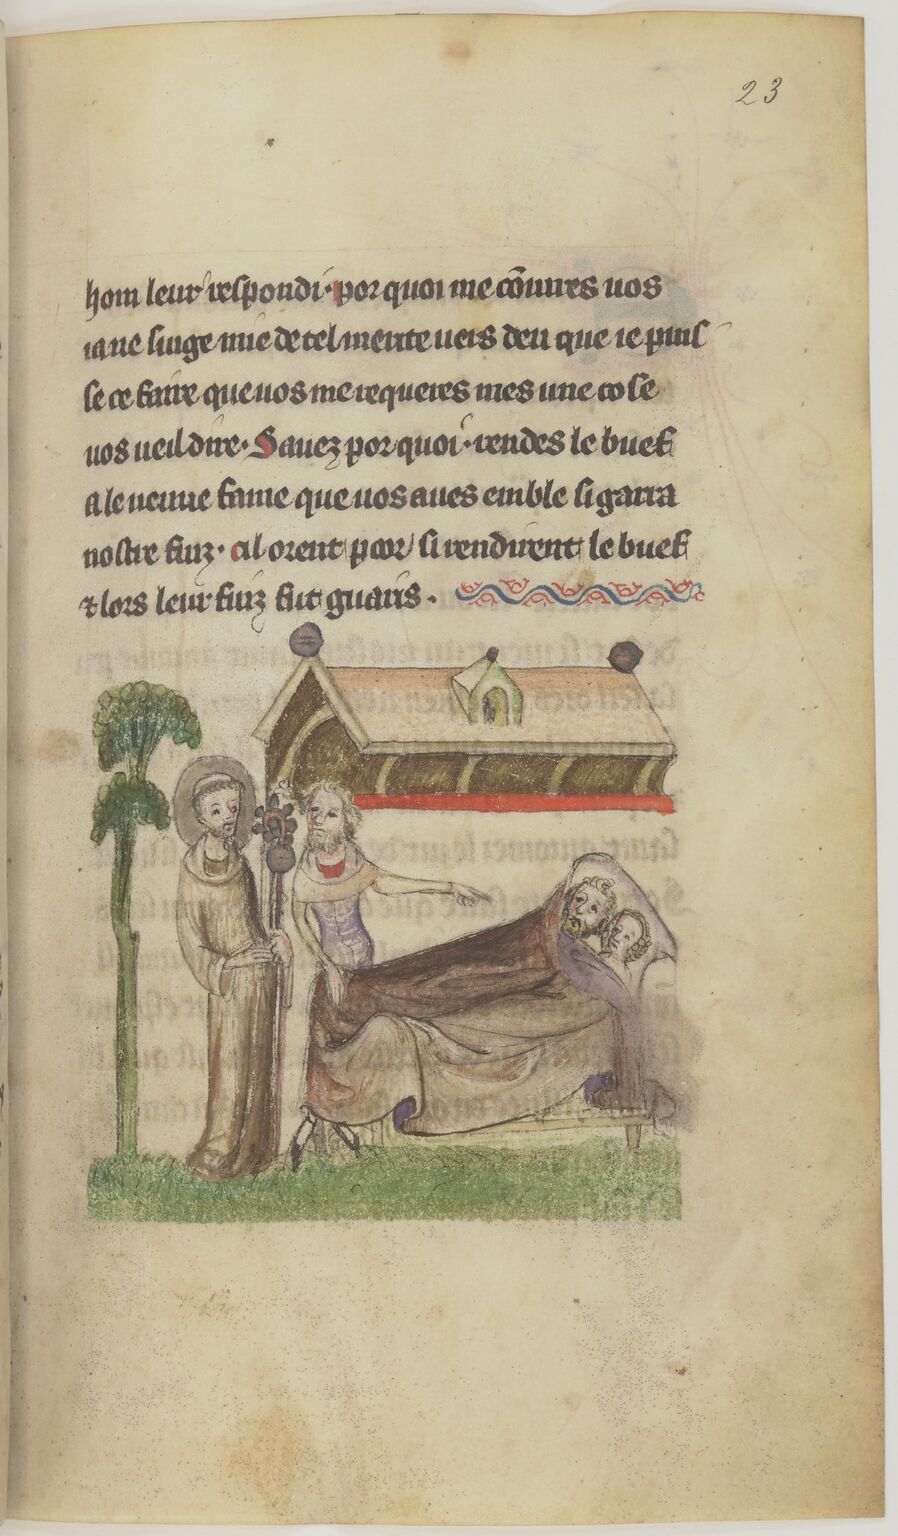 23
hom leur respondi· por quoi me cōnures uos
ia ne suige mie de tel merite uers deu que ie puis
se ce faire que uos me requeres mes une cose
uos ueil dire· Sauez por quoi· rendes le buef
a le ueuue fame que uos aues emble si garra
nostre fiuz· cil orent paor si rendirent le buef
⁊ lors leur fiuz fut guaris·